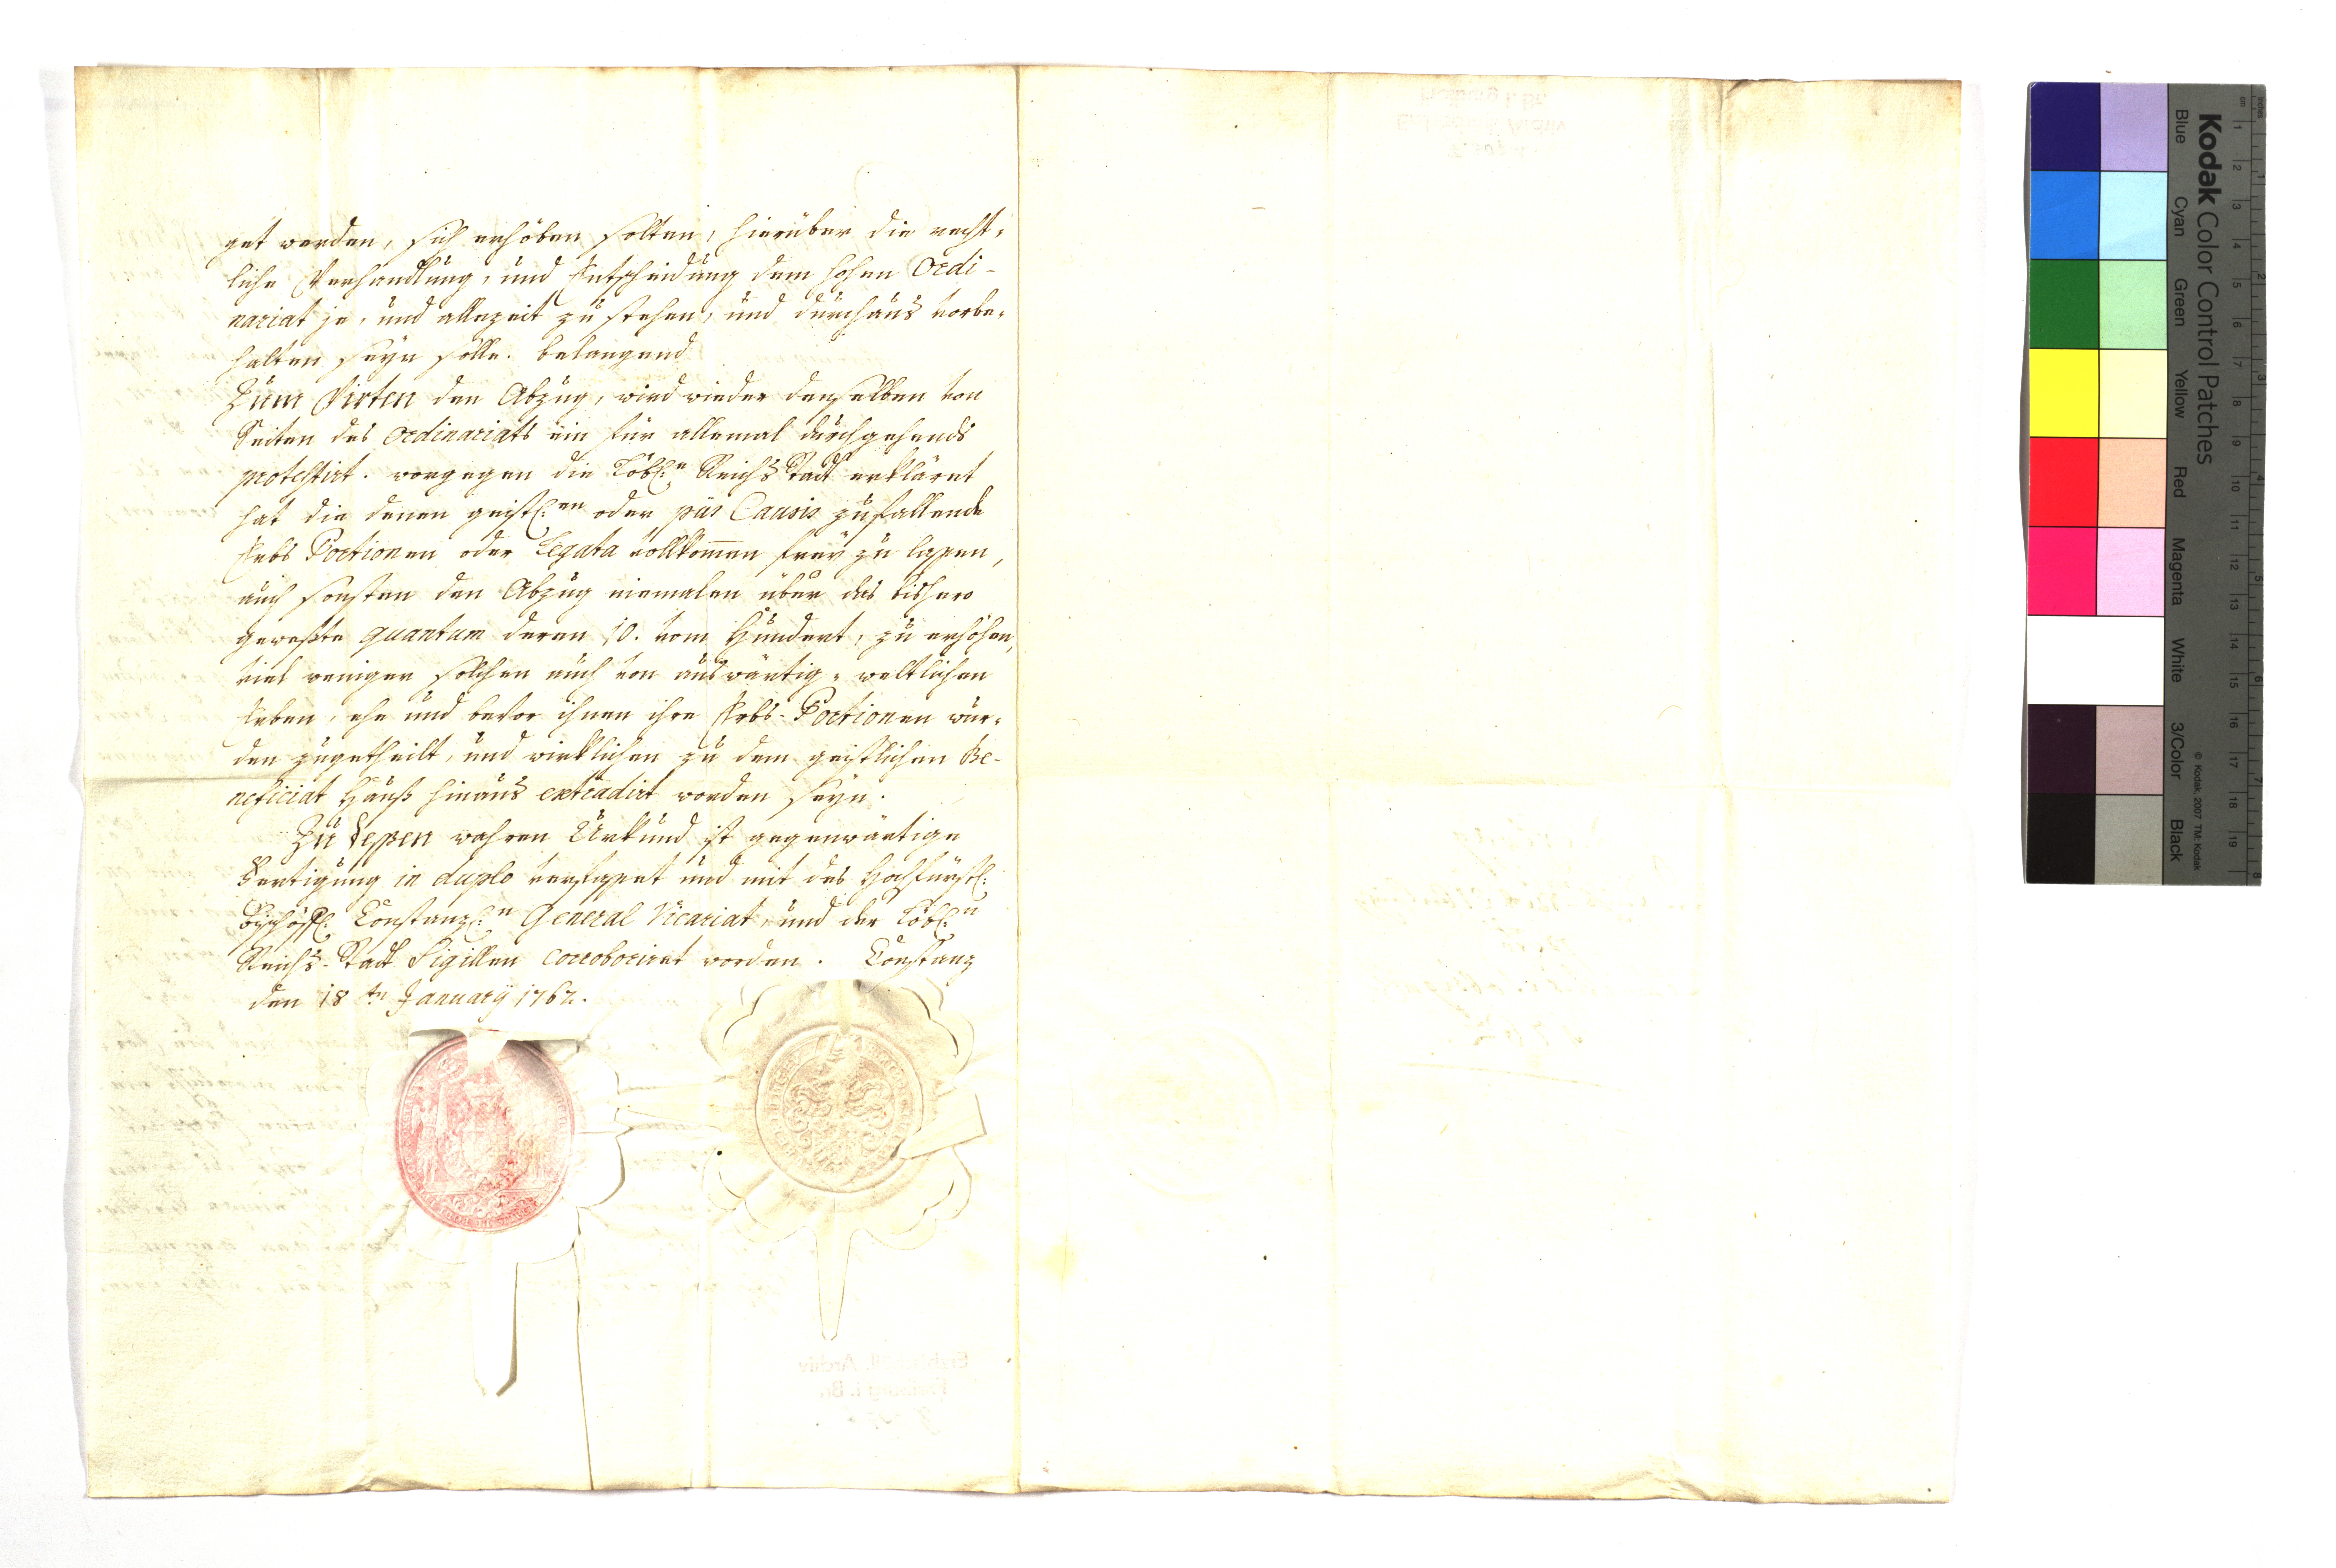 get werden, sich erhöben solten, hierüber die recht-
liche Verhandlung, und Entscheidung dem hohen Ordi-
nariat je, und allezeit zu stehen, und durchaus vorbe-
halten seyn solle. belangend
Zum Virten den Abzug, wird wieder denselben von
Seiten des Ordinariats ein für allemal durchgehends
protestirt. worgegen die Löbl:n Reichs Stadt erkläret
hat die denen geistl:en oder piis Causis zufallende
Erbs Portionen oder Legata vollkom̅en frey zu laßen,
auch sonsten den Abzug niemalen über das bishero
geweßte quantum deren 10. vom Hundert, zu erhöhen,
viel weniger solchen auch von auswärtig-weltlichen
Erben, ehe und bevor ihnen ihre Erbs-Portionen wür-
den zugetheilt, und wirklichen zu dem geistlichen Be-
neficiat Hauß hinaus extradirt worden seyn.
Zu deßen wahren Urkund ist gegenwärtige
Fertigung in duplo verfaßet und mit des Hochfürstl:
Bischöfl: Constanz:n General Vicariat, und der Löbl:n
Reichs-Stadt Sigillen corroboriret worden. Constanz
den 18tn January 1762.
Erzbischöfl. Archiv
Freiburg i. Br.
Kodak Color Control Patches
Blue Cyan Green Yellow Red Magenta White 3/Color Black
© Kodak, 2007 TM: Kodak